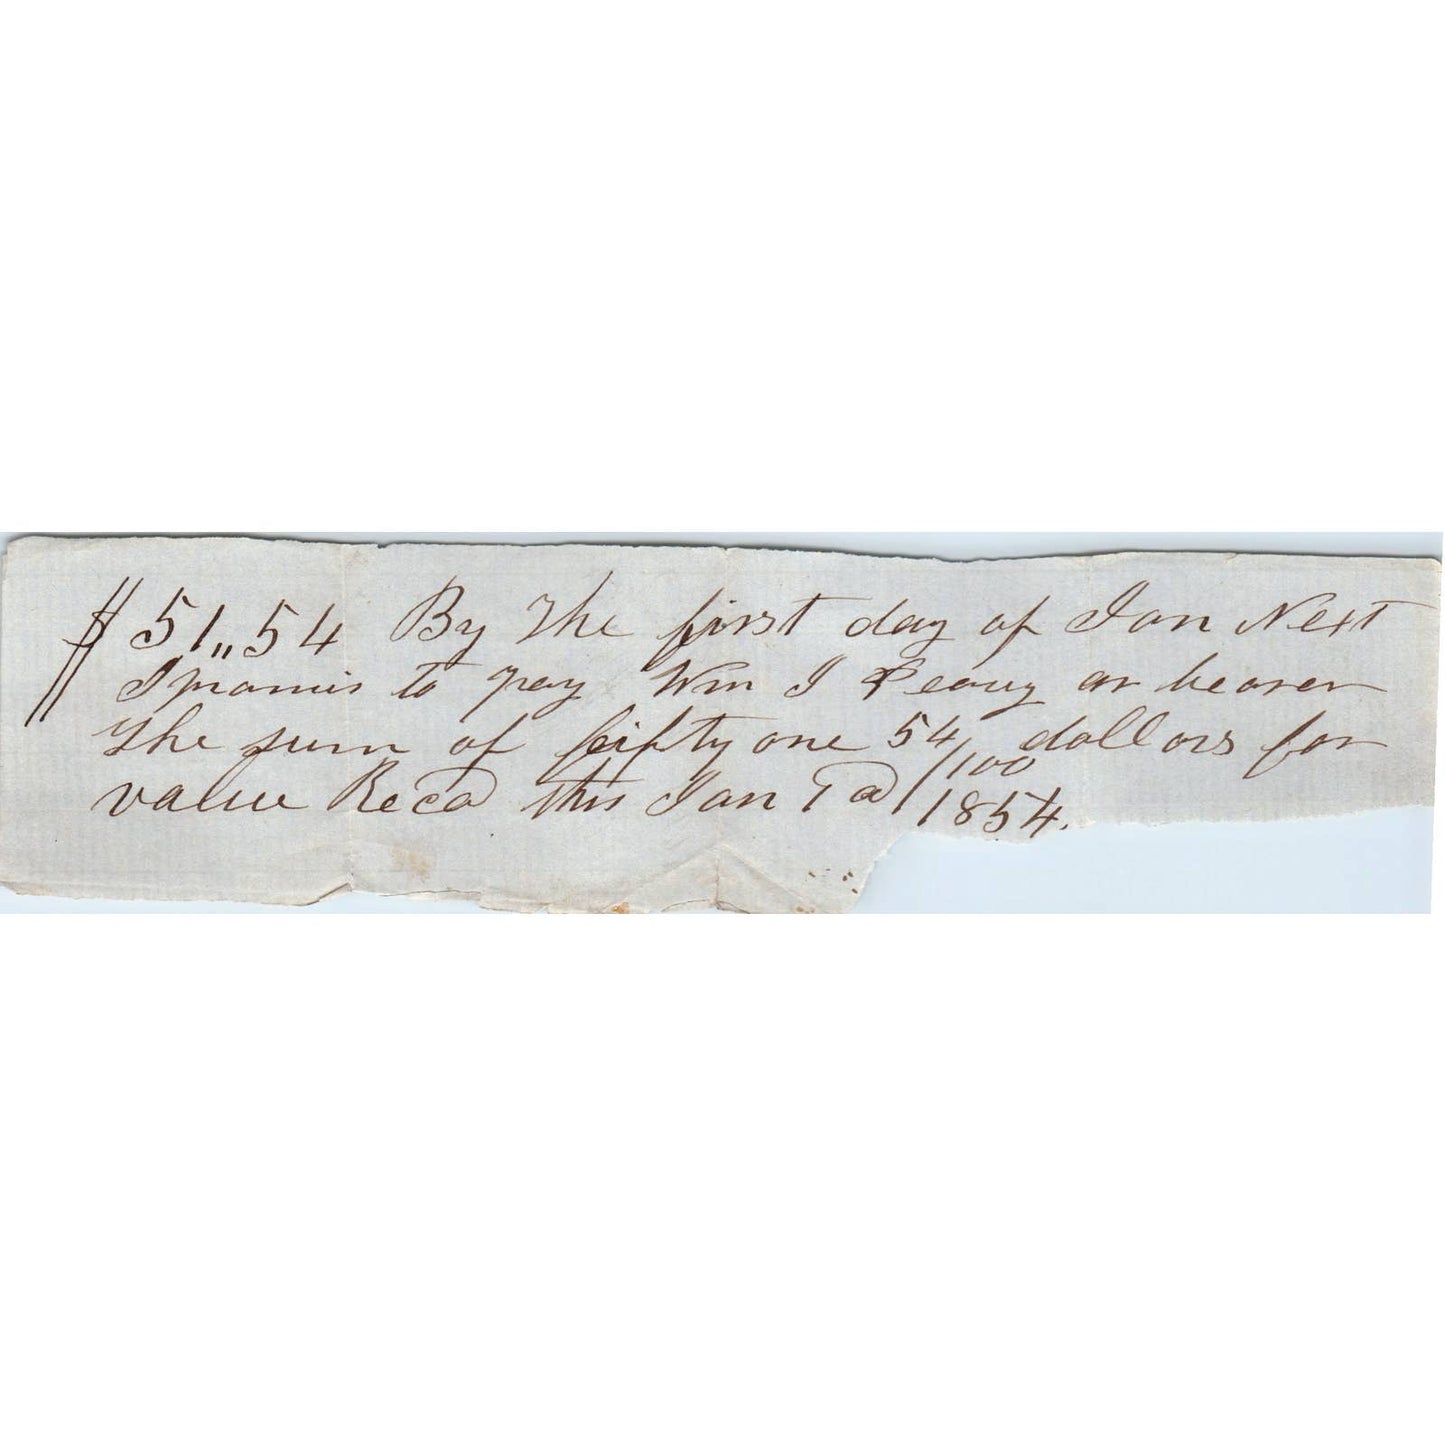 $ 51,,54 By The first day of Jan Next
I promis to pay Wm I Peavy or bearer
The sum of fifty one 54/100 dollors for
value Recd this Jan 1854.